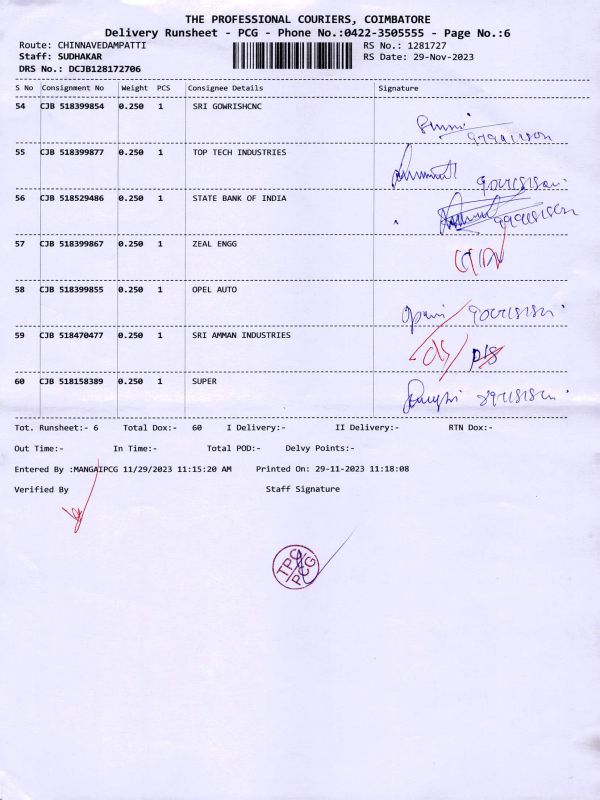 THE PROFESSIONAL COURIERS, COIMBATORE
Delivery Runsheet - PCG - Phone No.:0422-3505555 - Page No.:6
Route: CHINNAVEDAMPATTI RS No.: 1281727
Staff: SUDHAKAR RS Date: 29-Nov-2023
DRS No.: DCJB128172706
S No Consignment No Weight PCS Consignee Details Signature
54 CJB 518399854 0.250 1 SRI GOWRISHCNC
55 CJB 518399877 0.250 1 TOP TECH INDUSTRIES
56 CJB 518529486 0.250 1 STATE BANK OF INDIA
57 CJB 518399867 0.250 1 ZEAL ENGG
58 CJB 518399855 0.250 1 OPEL AUTO
59 CJB 518470477 0.250 1 SRI AMMAN INDUSTRIES
60 CJB 518158389 0.250 1 SUPER
Tot. Runsheet:- 6 Total Dox:- 60 I Delivery:- II Delivery:- RTN Dox:-
Out Time:- In Time:- Total POD:- Delvy Points:-
Entered By :MANGAIPCG 11/29/2023 11:15:20 AM Printed On: 29-11-2023 11:18:08
Verified By Staff Signature
TPC
PCG